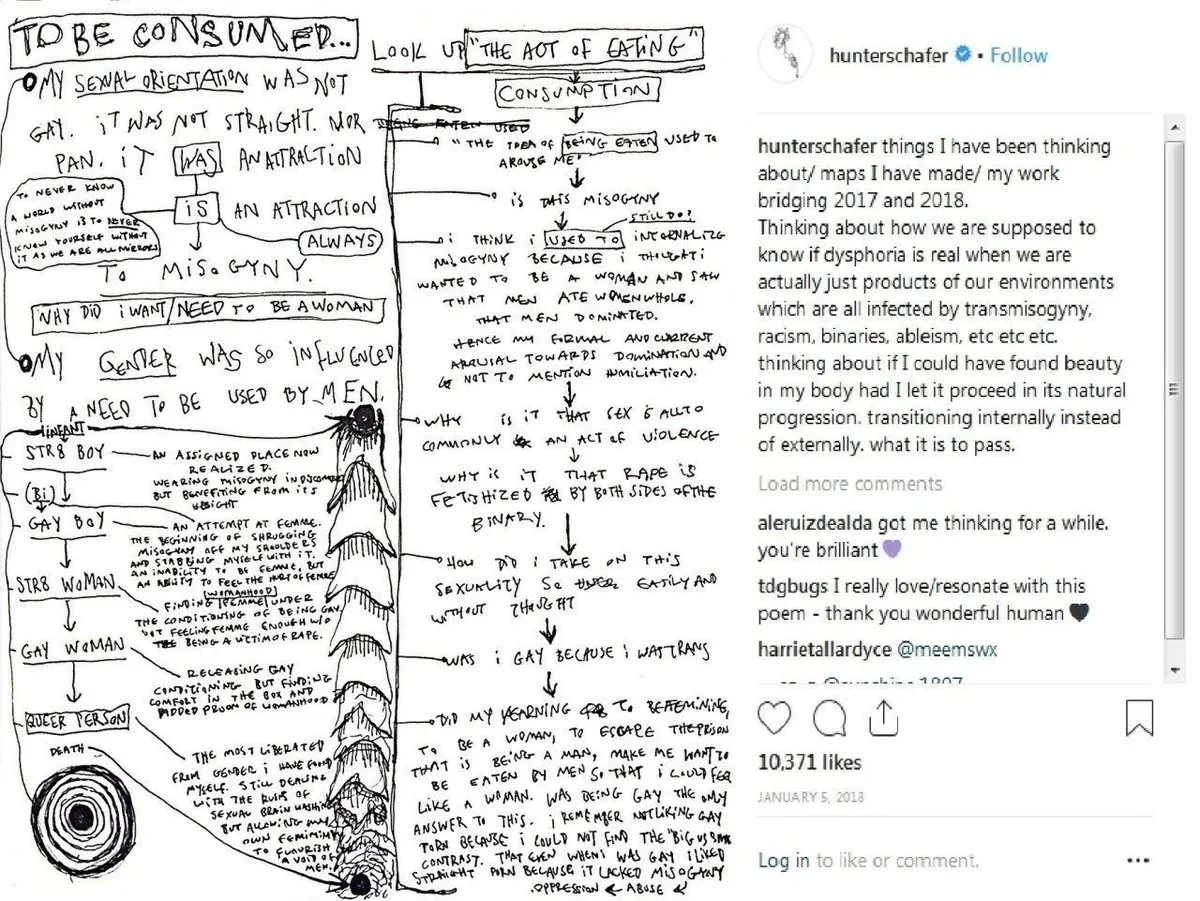 TO BE CONSUMED...
MY SEXUAL ORIENTATION WAS NOT
GAY. iT WAS NOT STRAIGHT. NOR
PAN. iT WAS AN ATTRACTION
iS AN ATTRACTION
ALWAYS
TO MiSOGYNY.
TO NEVER KNOW
A WORLD WITHOUT
MISOGYNY IS TO NEVER
KNOW YOURSELF WITHOUT
IT AS WE ARE ALL MIRRORS
WHY DiD i WANT/NEED TO BE A WOMAN
MY GENDER WAS SO INFLUENCED
BY A NEED TO BE USED BY MEN.
INFANT
STR8 BOY
AN ASSIGNED PLACE NOW
REALIZED.
WEARING MISOGYNY IN DISCOMFORT
BUT BENEFITING FROM ITS
WEIGHT
(Bi)
GAY BOY
AN ATTEMPT AT FEMME.
THE BEGINNING OF SHRUGGING
MISOGYNY OFF MY SHOULDERS
AND STABBING MYSELF WITH IT.
AN INABILITY TO BE FEMME, BUT
AN ABILITY TO FEEL THE HURT OF FEMME
WOMANHOOD
STR8 WOMAN
FINDING FEMME UNDER
THE CONDITIONING OF BEING GAY.
NOT FEELING FEMME ENOUGH W/O
BEING A VICTIM OF RAPE.
GAY WOMAN
RELEASING GAY
CONDITIONING BUT FINDING
COMFORT IN THE BOX AND
PADDED PRISON OF WOMANHOOD
QUEER PERSON
DEATH
THE MOST LIBERATED
FROM GENDER i HAVE FOUND
MYSELF. STILL DEALING
WITH THE RUINS OF
SEXUAL BRAIN WASHING
BUT ALLOWING MY
OWN FEMININITY
TO FLOURISH
A VOID OF
MEN.
LOOK UP "THE ACT OF EATING"
CONSUMPTION
BEING EATEN USED
"THE IDEA OF BEING EATEN USED TO
AROUSE ME"
iS THIS MISOGYNY
STILL DO?
i THINK i USED TO INTERNALIZE
MISOGYNY BECAUSE i THOUGHT i
WANTED TO BE A WOMAN AND SAW
THAT MEN ATE WOMEN WHOLE.
THAT MEN DOMINATED.
HENCE MY FORMAL AND CURRENT
AROUSAL TOWARDS DOMINATION AND
NOT TO MENTION HUMILIATION.
WHY iS IT THAT SEX IS ALL TO
COMMONLY AN ACT OF VIOLENCE
WHY IS IT THAT RAPE IS
FETISHIZED BY BOTH SIDES OF THE
BINARY.
HOW DID i TAKE ON THIS
SEXUALITY SO EASILY AND
WITHOUT THOUGHT
WAS i GAY BECAUSE i WAS TRANS
DID MY YEARNING TO BE FEMININE,
TO BE A WOMAN, TO ESCAPE THE PRISON
THAT IS BEING A MAN, MAKE ME WANT TO
BE EATEN BY MEN SO THAT i COULD FEEL
LIKE A WOMAN. WAS BEING GAY THE ONLY
ANSWER TO THIS. i REMEMBER NOT LIKING GAY
PORN BECAUSE i COULD NOT FIND THE "BIG VS SMALL
CONTRAST. THAT EVEN WHEN i WAS GAY i LIKED
STRAIGHT PORN BECAUSE IT LACKED MISOGYNY
OPPRESSION ← ABUSE
hunterschafer • Follow
hunterschafer things I have been thinking
about/ maps I have made/ my work
bridging 2017 and 2018.
Thinking about how we are supposed to
know if dysphoria is real when we are
actually just products of our environments
which are all infected by transmisogyny,
racism, binaries, ableism, etc etc etc.
thinking about if I could have found beauty
in my body had I let it proceed in its natural
progression. transitioning internally instead
of externally. what it is to pass.
Load more comments
aleruizdealda got me thinking for a while.
you're brilliant 💜
tdgbugs I really love/resonate with this
poem - thank you wonderful human 🖤
harrietallardyce @meemswx
10,371 likes
JANUARY 5, 2018
Log in to like or comment.